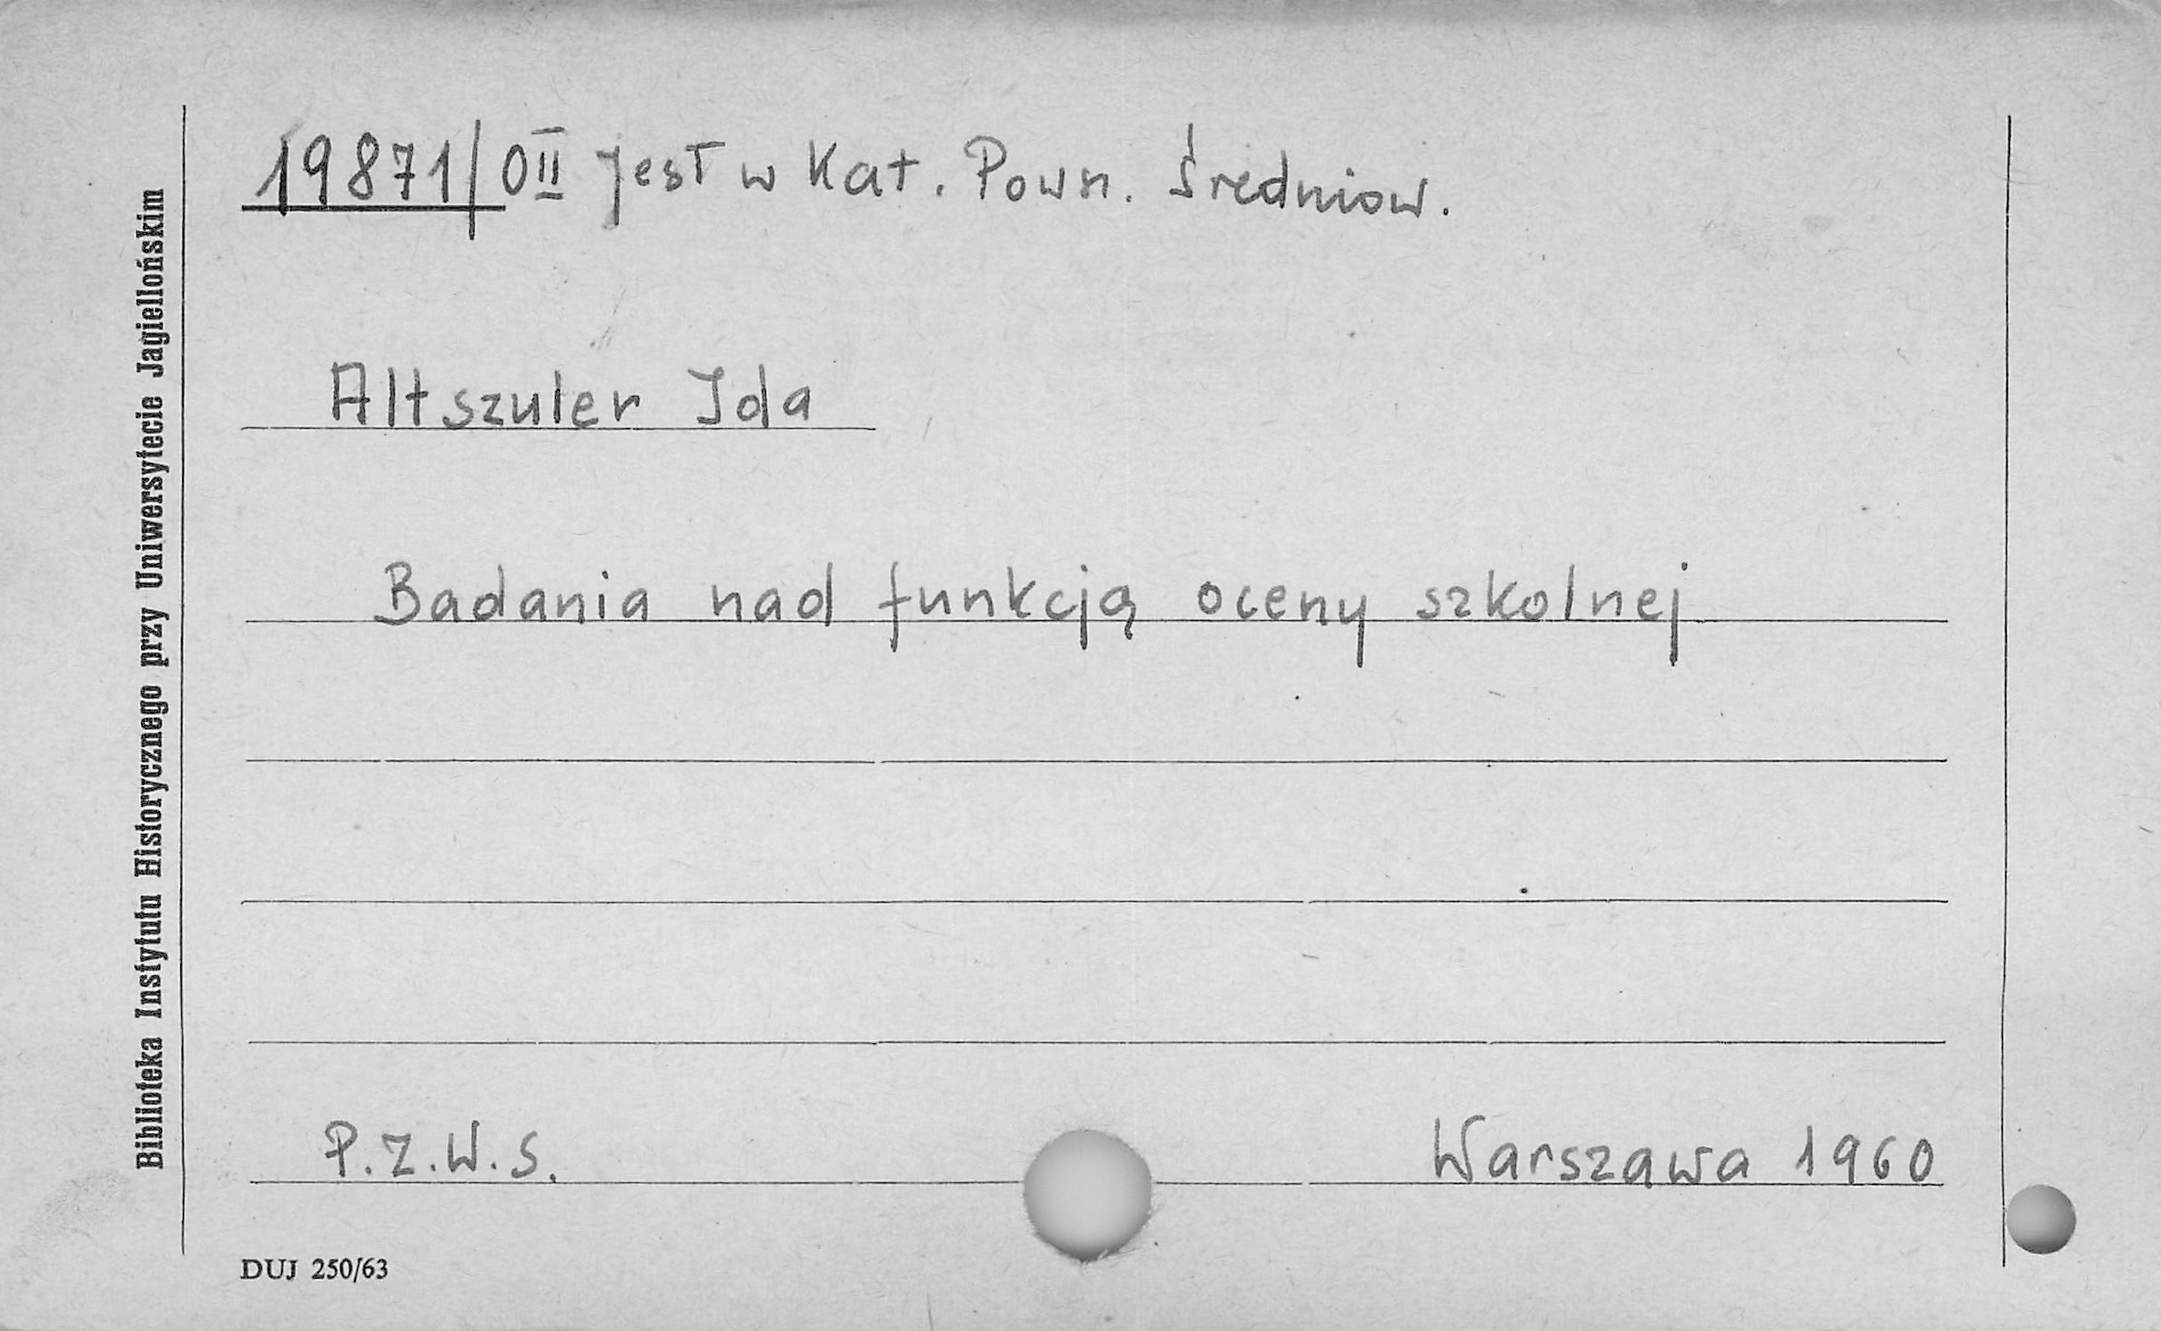 19871/0II Jest w Kat. Pown. Średniow.
Altszuler Ida
Badania nad funkcją oceny szkolnej
P.Z.W.S. Warszawa 1960
DUJ 250/63
Biblioteka Instytutu Historycznego przy Uniwersytecie Jagiellońskim